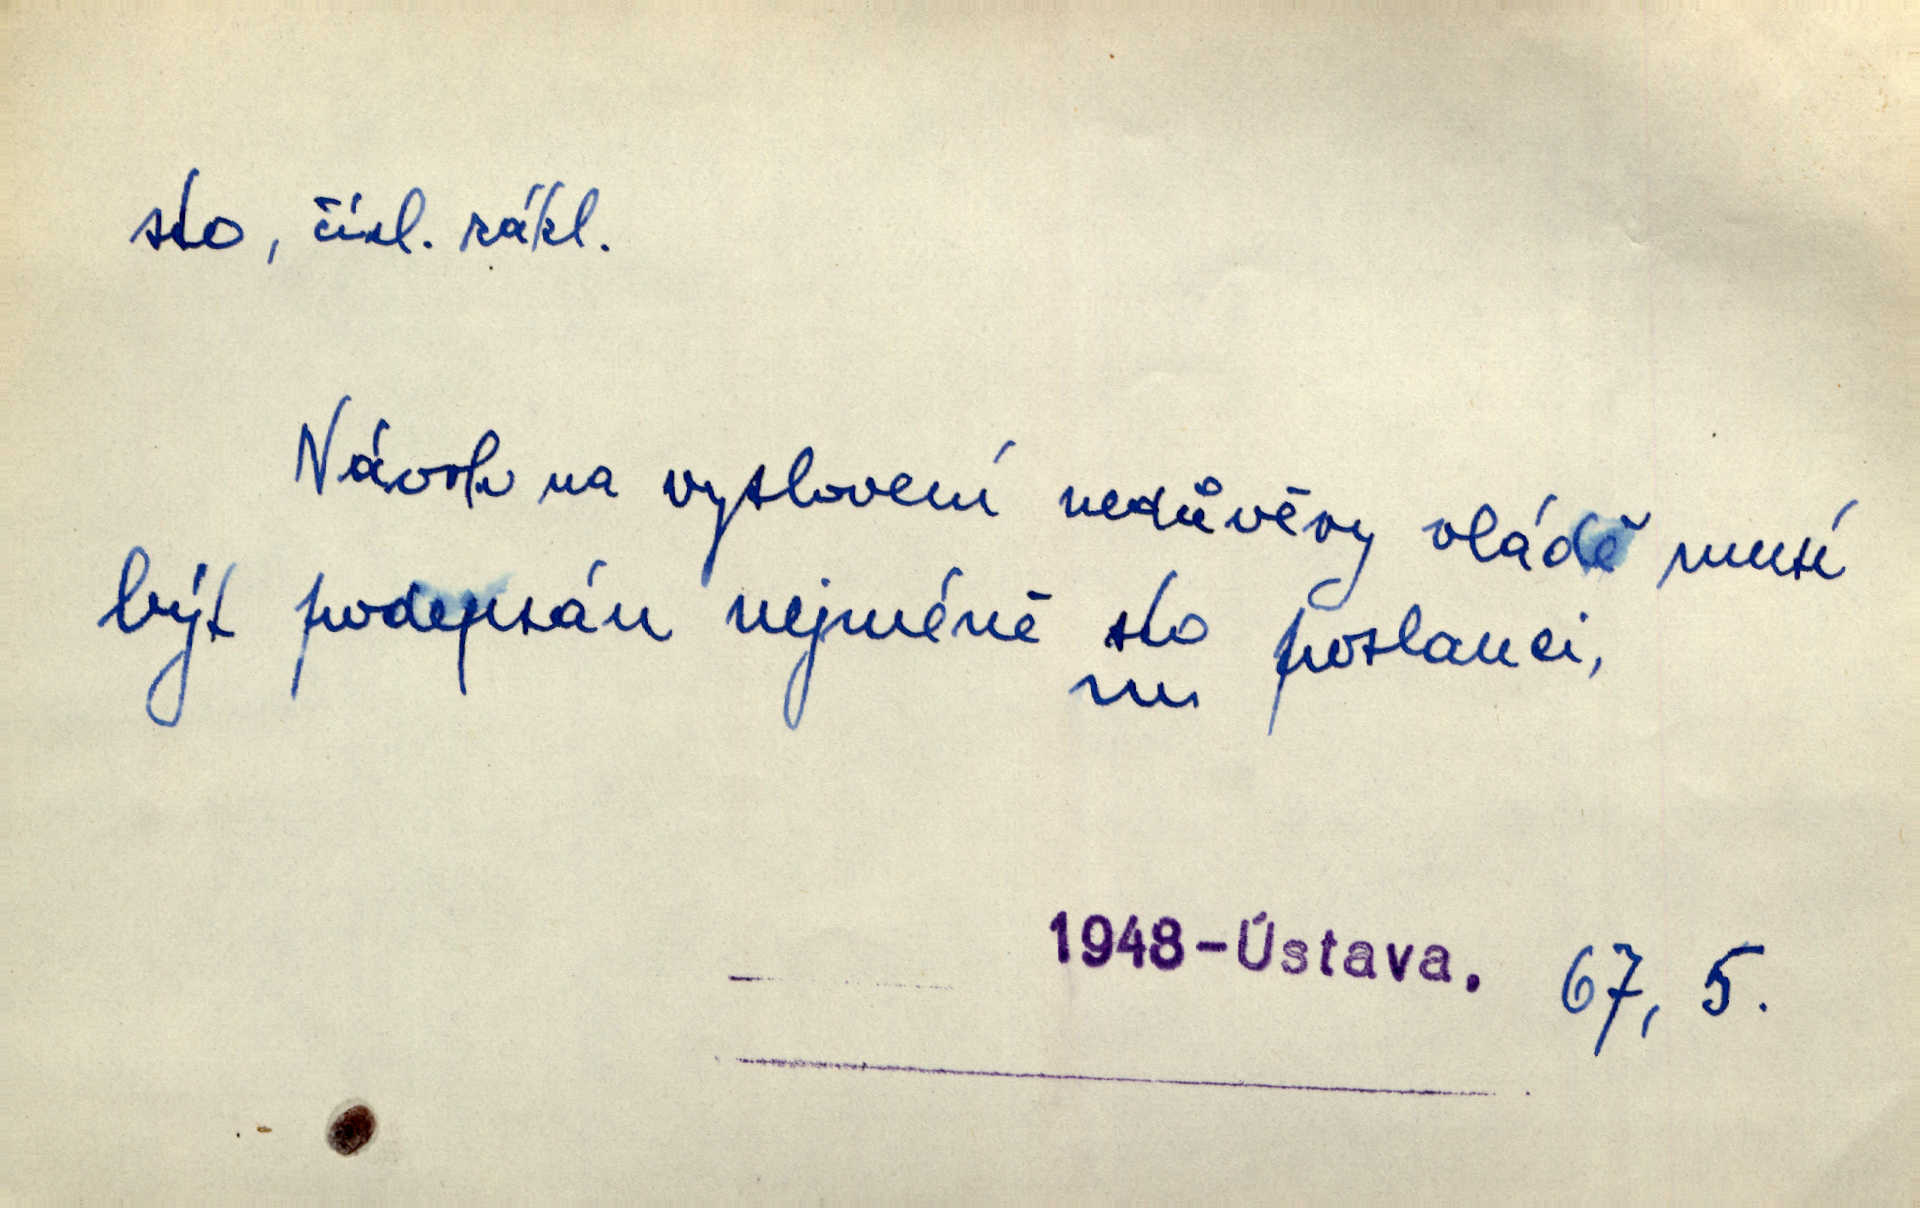 sto, čísl. zákl.
Návrh na vyslovení nedůvěry vládě musí
být podepsán nejméně sto poslanci,
1948-Ústava. 67, 5.